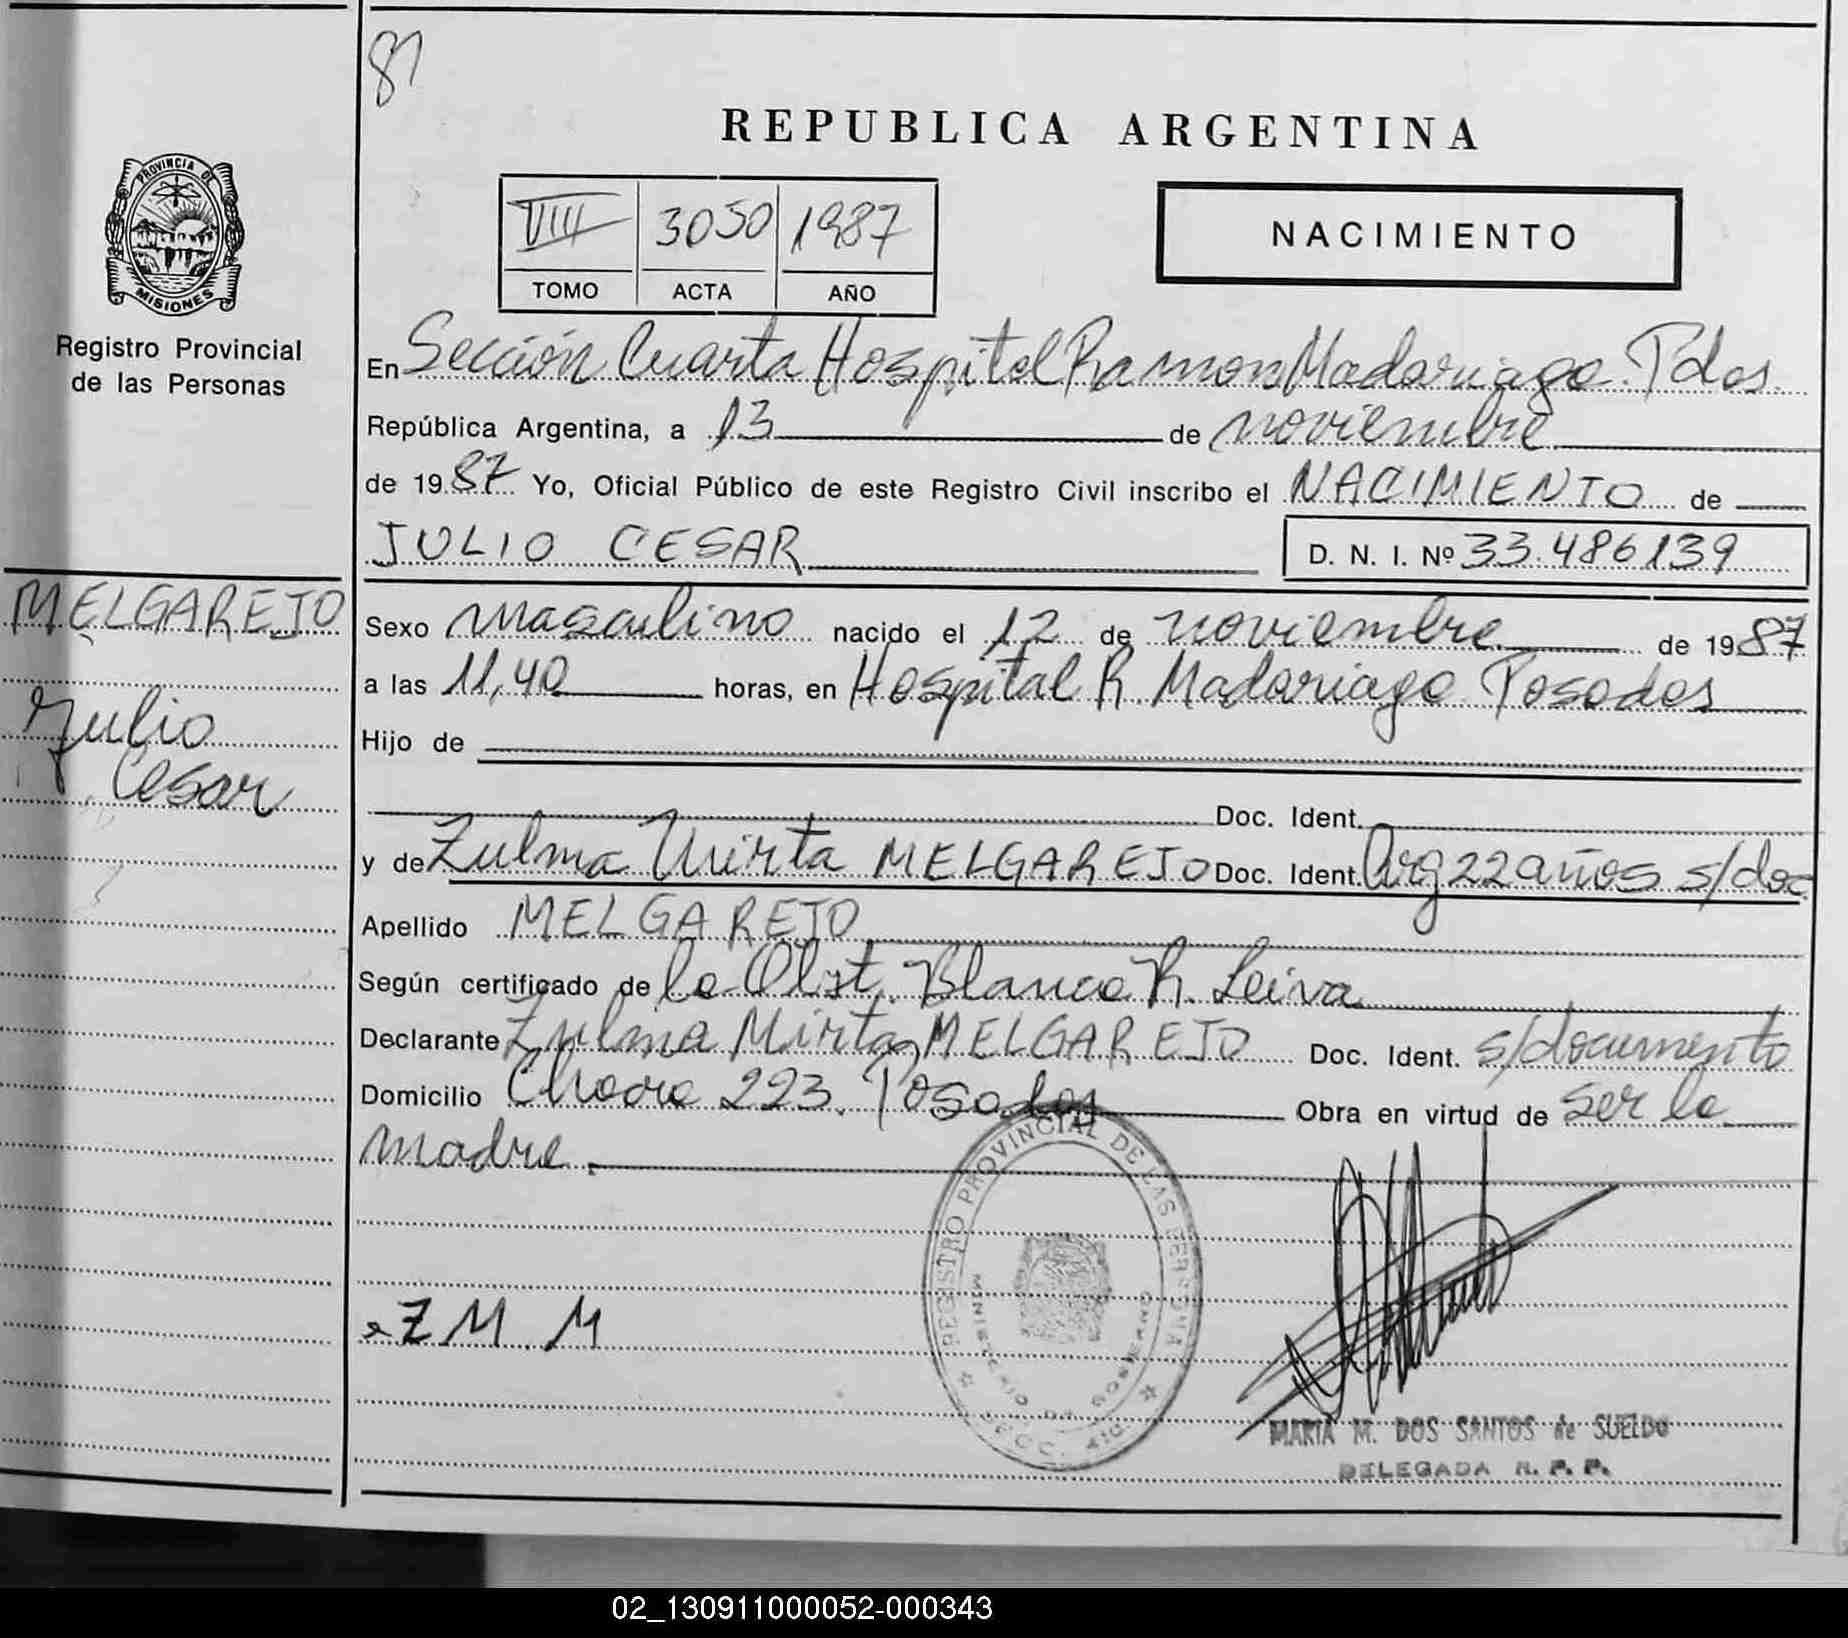 81
REPUBLICA ARGENTINA
PROVINCIA DE
MISIONES
Registro Provincial
de las Personas
VIII 3050 1987
TOMO ACTA AÑO
NACIMIENTO
En Sección Cuarta Hospital Ramon Madariaga. Pdas.
República Argentina, a 13 de noviembre
de 1987 Yo, Oficial Público de este Registro Civil inscribo el NACIMIENTO de
JULIO CESAR D. N. I. Nº 33.486139
MELGAREJO
Julio
Cesar
Sexo masculino nacido el 12 de noviembre de 1987
a las 11,40 horas, en Hospital R. Madariaga Posadas
Hijo de
Doc. Ident.
y de Zulma Mirta MELGAREJO Doc. Ident. Arg 22 años s/doc
Apellido MELGAREJO
Según certificado de la Obst. Blanca R. Leiva
Declarante Zulma Mirta MELGAREJO Doc. Ident. s/documento
Domicilio Chacra 223. Posadas Obra en virtud de ser la
madre.
REGISTRO PROVINCIAL DE LAS PERSONAS
MINISTERIO DE GOBIERNO
x Z M. M
MARIA M. DOS SANTOS de SUELDO
DELEGADA R. P. P.
02_130911000052-000343